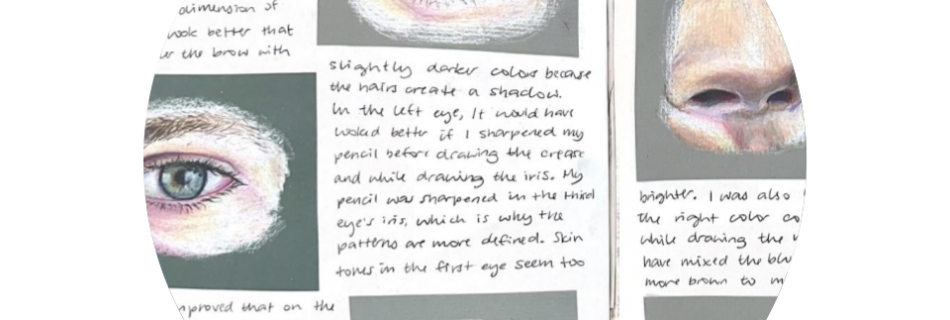 dimension of
look better that
the brow with
slightly darker colour because
the hairs create a shadow.
In the left eye, It would have
looked better if I sharpened my
pencil before drawing the crease
and while drawing the iris. My
pencil was sharpened in the third
eye's iris, which is why the
patterns are more defined. Skin
tones in the first eye seem too
improved that on the
brighter. I was also
the right color
while drawing the
have mixed the
more brown to